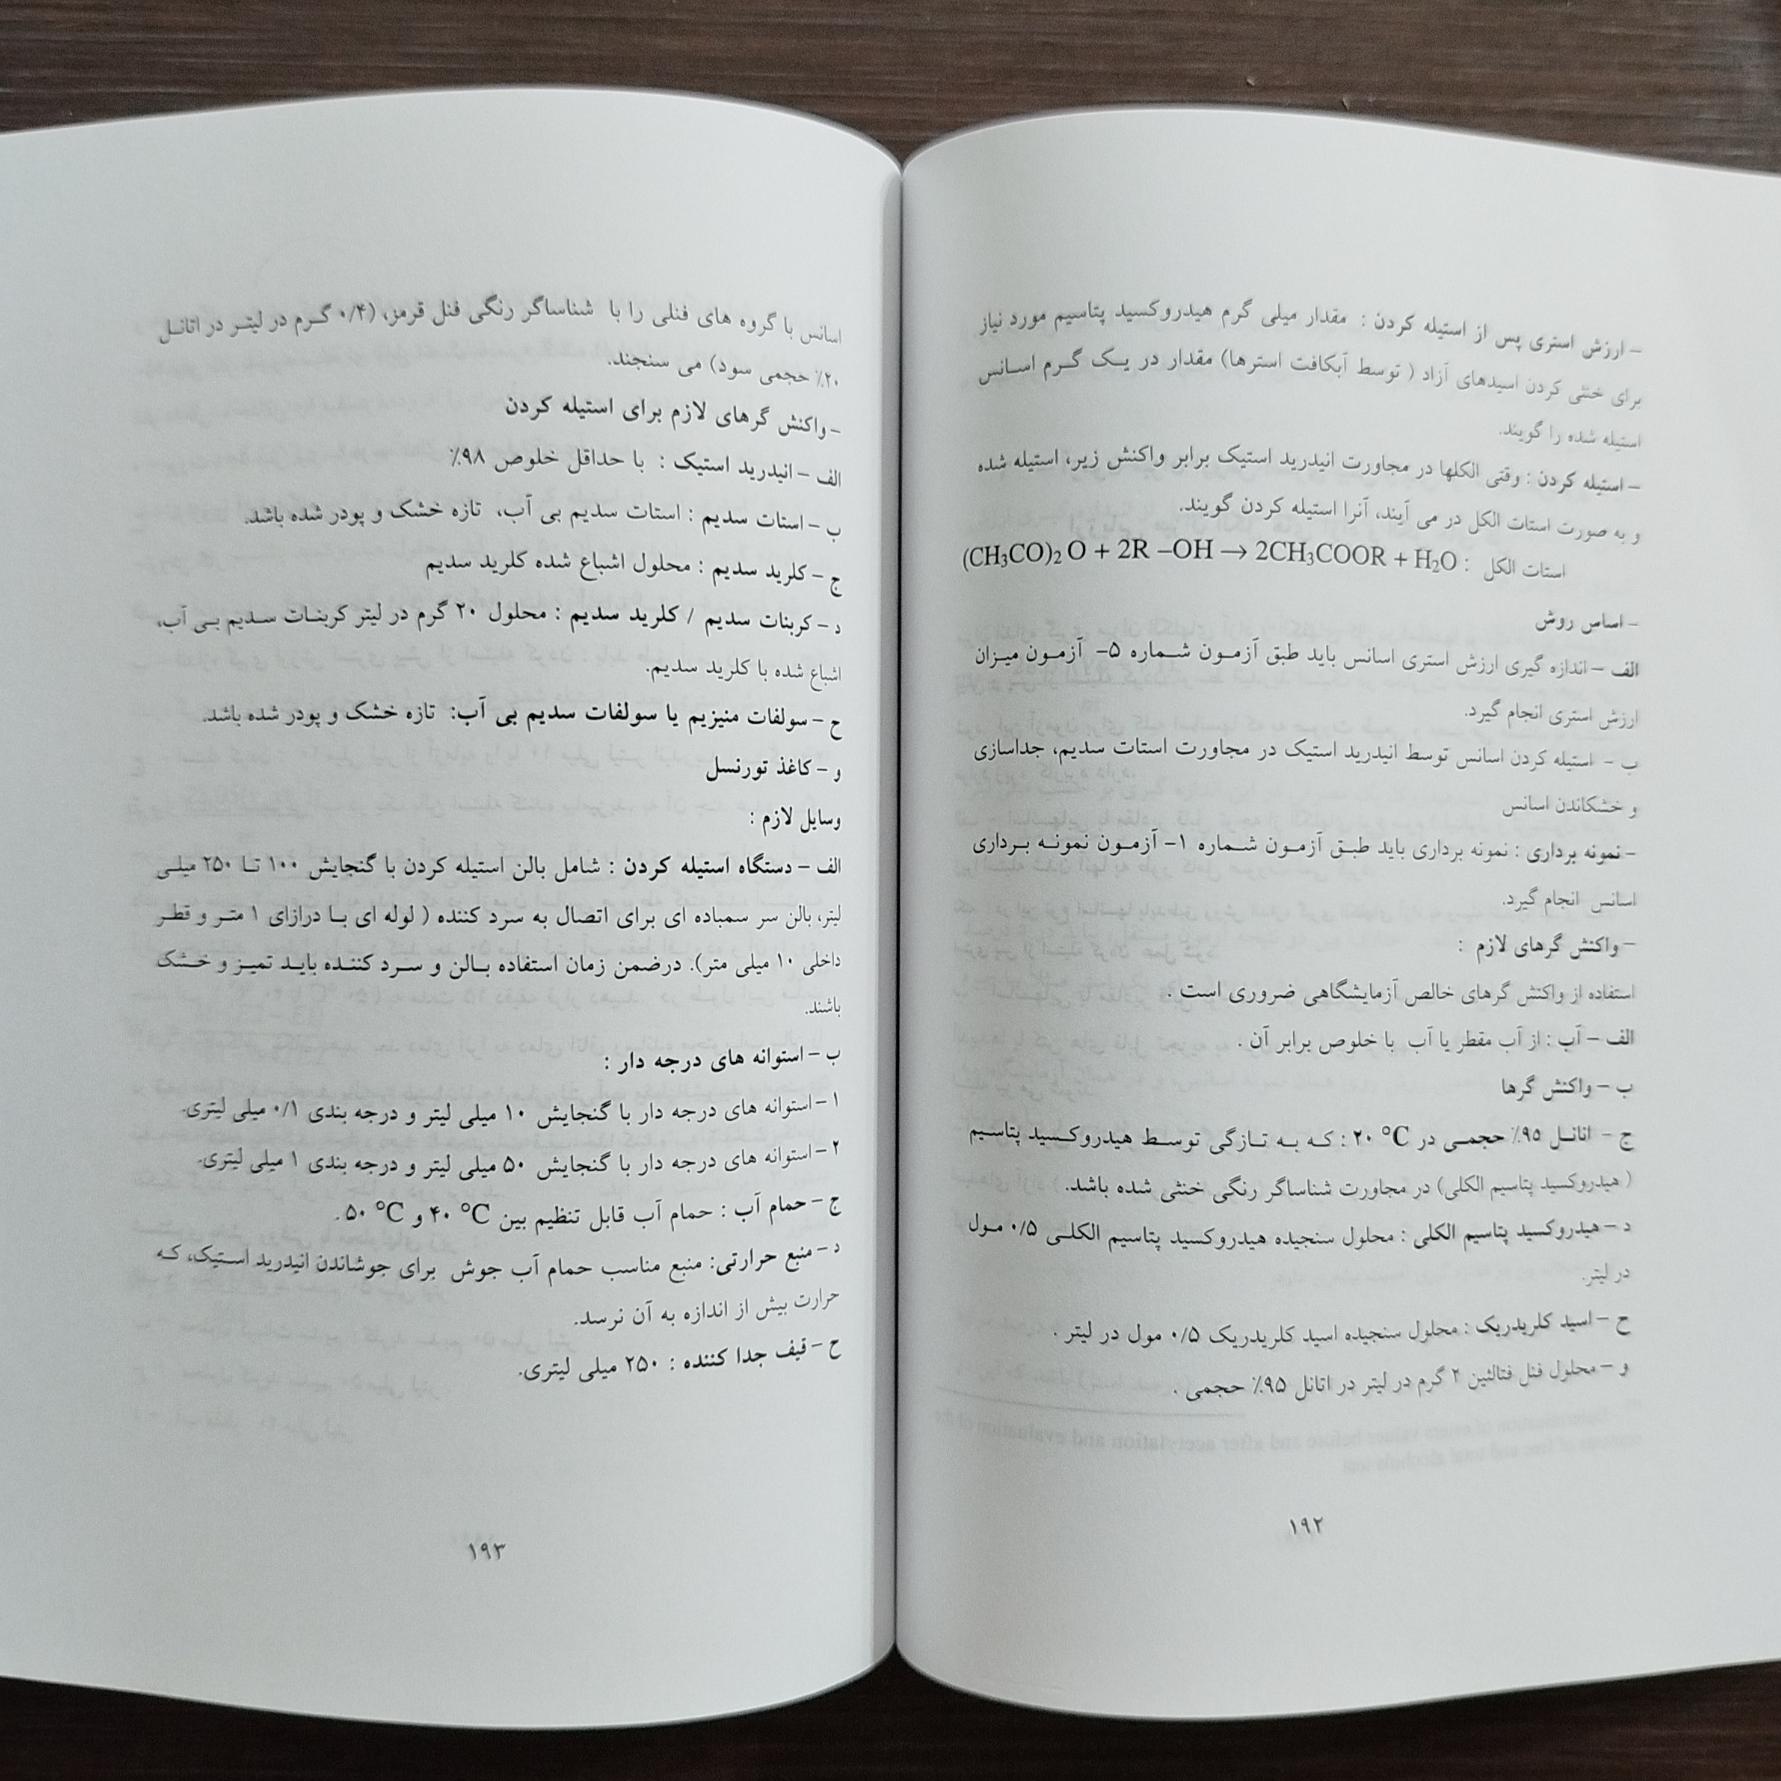 - ارزش استری پس از استیله کردن : مقدار میلی گرم هیدروکسید پتاسیم مورد نیاز
برای خنثی کردن اسیدهای آزاد ( توسط آبکافت استرها) مقدار در یک گرم اسانس
استیله شده را گویند.
- استیله کردن : وقتی الکلها در مجاورت انیدرید استیک برابر واکنش زیر، استیله شده
و به صورت استات الکل در می آیند، آنرا استیله کردن گویند.
استات الکل : (CH₃CO)₂ O + 2R –OH → 2CH₃COOR + H₂O
- اساس روش
الف - اندازه گیری ارزش استری اسانس باید طبق آزمون شماره ۵- آزمون میزان
ارزش استری انجام گیرد.
ب - استیله کردن اسانس توسط انیدرید استیک در مجاورت استات سدیم، جداسازی
و خشکاندن اسانس
- نمونه برداری : نمونه برداری باید طبق آزمون شماره ۱- آزمون نمونه برداری
اسانس انجام گیرد.
- واکنش گرهای لازم :
استفاده از واکنش گرهای خالص آزمایشگاهی ضروری است .
الف - آب : از آب مقطر یا آب با خلوص برابر آن .
ب - واکنش گرها
ج - اتانل ۹۵٪ حجمی در ۲۰ °C : که به تازگی توسط هیدروکسید پتاسیم
( هیدروکسید پتاسیم الکلی) در مجاورت شناساگر رنگی خنثی شده باشد.
د - هیدروکسید پتاسیم الکلی : محلول سنجیده هیدروکسید پتاسیم الکلی ۰/۵ مول
در لیتر.
ح - اسید کلریدریک : محلول سنجیده اسید کلریدریک ۰/۵ مول در لیتر .
و - محلول فنل فتالئین ۲ گرم در لیتر در اتانل ۹۵٪ حجمی .
۱۹۲
اسانس با گروه های فنلی را با شناساگر رنگی فنل قرمز، (۰/۴ گرم در لیتر در اتانل
۲۰٪ حجمی سود) می سنجند.
- واکنش گرهای لازم برای استیله کردن
الف - انیدرید استیک : با حداقل خلوص ۹۸٪
ب - استات سدیم : استات سدیم بی آب، تازه خشک و پودر شده باشد.
ج - کلرید سدیم : محلول اشباع شده کلرید سدیم
د - کربنات سدیم / کلرید سدیم : محلول ۲۰ گرم در لیتر کربنات سدیم بی آب،
اشباع شده با کلرید سدیم.
ح - سولفات منیزیم یا سولفات سدیم بی آب: تازه خشک و پودر شده باشد.
و - کاغذ تورنسل
وسایل لازم :
الف - دستگاه استیله کردن : شامل بالن استیله کردن با گنجایش ۱۰۰ تا ۲۵۰ میلی
لیتر، بالن سر سمباده ای برای اتصال به سرد کننده ( لوله ای با درازای ۱ متر و قطر
داخلی ۱۰ میلی متر). درضمن زمان استفاده بالن و سرد کننده باید تمیز و خشک
باشند.
ب - استوانه های درجه دار :
۱- استوانه های درجه دار با گنجایش ۱۰ میلی لیتر و درجه بندی ۰/۱ میلی لیتری.
۲- استوانه های درجه دار با گنجایش ۵۰ میلی لیتر و درجه بندی ۱ میلی لیتری.
ج - حمام آب : حمام آب قابل تنظیم بین ۴۰ °C و ۵۰ °C .
د - منبع حرارتی: منبع مناسب حمام آب جوش برای جوشاندن انیدرید استیک، که
حرارت بیش از اندازه به آن نرسد.
ح - قیف جدا کننده : ۲۵۰ میلی لیتری.
۱۹۳